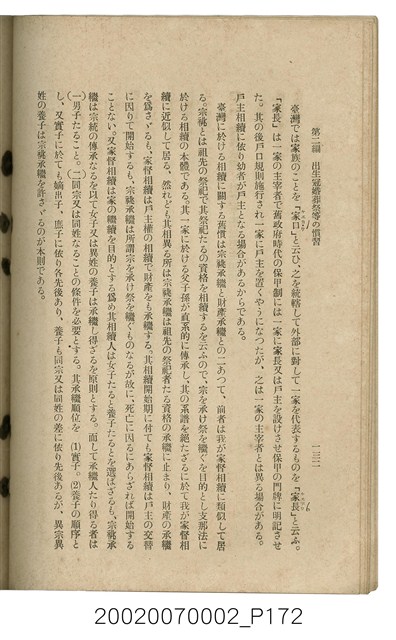 第二編 出生冠婚葬祭等の慣習
一三二
臺灣では家族のことを「家口」と云ひ、之を統轄して外部に對して一家を代表するものを「家長」と云ふ。
「家長」は一家の主宰者で舊政府時代の保甲制には一家に家長又は戸主を設けさせ保甲の門牌に明記させ
た。其の後戸口規則施行され一家に戸主を置くやうになつたが、之は一家の主宰者とは異る場合がある。
戸主相續に依り幼者が戸主となる場合があるからである。
臺灣に於ける相續に關する舊慣は宗祧承繼と財產承繼との二あつて、前者は我が家督相續に類似して居
る。宗祧とは祖先の祭祀で其祭祀たるの資格を相續するを云ふので、宗を承け祭を繼ぐを目的とし支那法に
於ける相續の本體である。其一家に於ける父子孫が直系的に傳承し、其の系譜を絕たざるに於て我が家督相
續に近似して居る、然れども其相異る所は宗祧承繼は祖先の祭祀者たる資格の承繼に止まり、財產の承繼
を爲さゞるも、家督相續は戸主權の相續で財產をも承繼する。其相續開始期に付ても家督相續は戸主の交替
に因りて開始するも、宗祧承繼は所謂宗を承け祭を繼ぐものなるが故に、死亡に因るにあらざれば開始する
ことない。又家督相續は家の繼續を目的とする爲め其相續人は女子たると養子たるとを選ばざるも、宗祧承
繼は宗統の傳承なるを以て女子又は異姓の養子は承繼し得ざるを原則とする。而して承繼人たり得る者は
(一)男子たること。(二)同宗又は同姓なることの條件を必要とする。其承繼順位を (1)實子。(2)養子の順序と
し、又實子に於ても嫡出子、庶子に依り各先後あり、養子も同宗又は同姓の差に依り先後あるが、異宗異
姓の養子は宗祧承繼を許さゞるのが本則である。
20020070002_P172